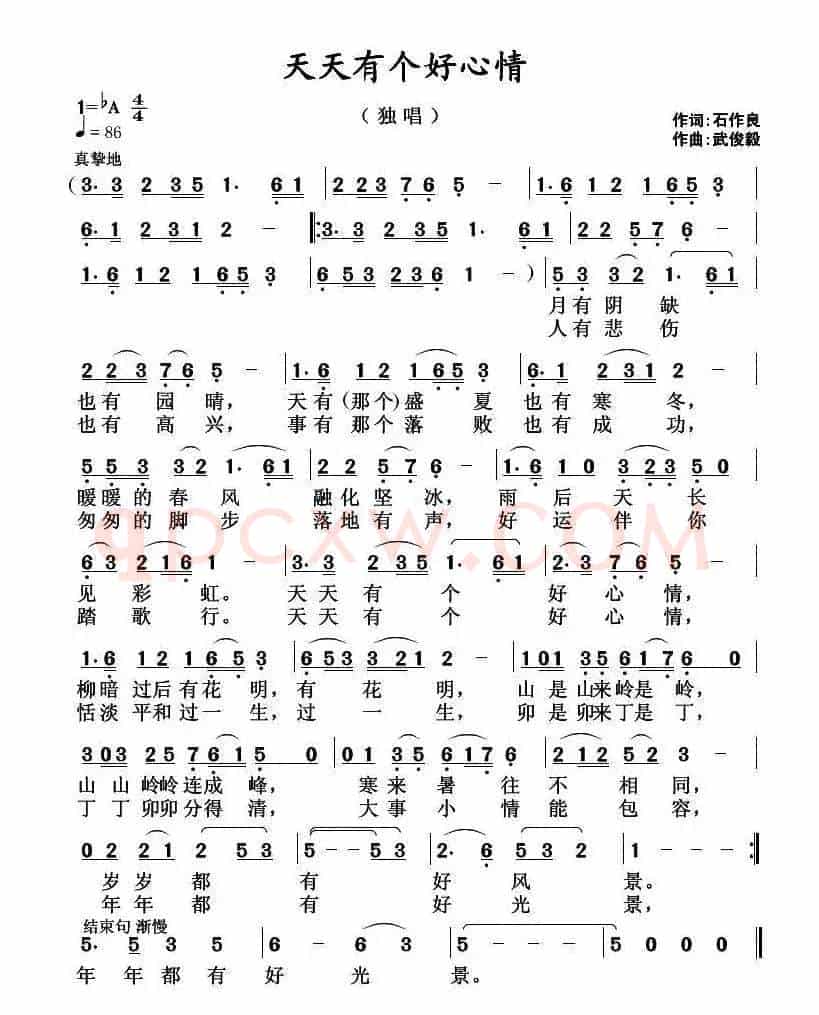 天天有个好心情
（独唱）
1=♭A 4/4
♩=86
作词:石作良
作曲:武俊毅
真挚地
(3· 3 2 3 5 1· 6 1 | 2 2 3 7 6 5 - | 1· 6 1 2 1 6 5 3 |
6· 1 2 3 1 2 - ‖: 3· 3 2 3 5 1· 6 1 | 2 2 5 7 6 - |
1· 6 1 2 1 6 5 3 | 6 5 3 2 3 6 1 - ) | 5 3 3 2 1· 6 1 |
月有阴缺
人有悲伤
2 2 3 7 6 5 - | 1· 6 1 2 1 6 5 3 | 6· 1 2 3 1 2 - |
也有园晴，天有(那个)盛夏也有寒冬，
也有高兴，事有那个落败也有成功，
5 5 3 3 2 1· 6 1 | 2 2 5 7 6 - | 1· 6 1 0 3 2 3 5 0 |
暖暖的春风融化坚冰，雨后天长
匆匆的脚步落地有声，好运伴你
6 3 2 1 6 1 - | 3· 3 2 3 5 1· 6 1 | 2· 3 7 6 5 - |
见彩虹。天天有个好心情，
踏歌行。天天有个好心情，
1· 6 1 2 1 6 5 3 | 6 5 3 3 2 1 2 - | 1 0 1 3 5 6 1 7 6 0 |
柳暗过后有花明，有花明，山是山来岭是岭，
恬淡平和过一生，过一生，卯是卯来丁是丁，
3 0 3 2 5 7 6 1 5 0 | 0 1 3 5 6 1 7 6 | 2 1 2 5 2 3 - |
山山岭岭连成峰，寒来暑往不相同，
丁丁卯卯分得清，大事小情能包容，
0 2 2 1 2 5 3 | 5 - 5 5 3 | 2· 6 5 5 3 | 1 - - - :‖
岁岁都有好风景。
年年都有好光景，
结束句 渐慢
5· 5 3 5 | 6 - 6· 3 | 5 - - - | 5 0 0 0 ‖
年年都有好光景。
qpcxw.COM